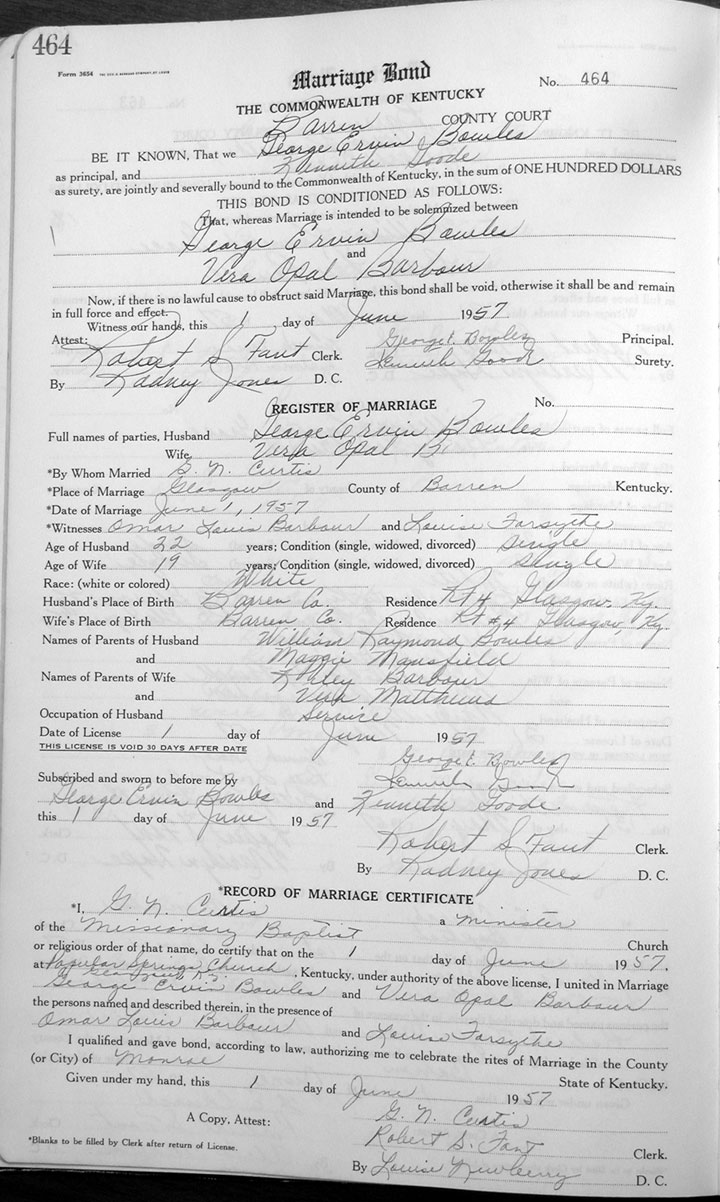 464
Form 3654 THE GEO. D. BARNARD COMPANY, ST. LOUIS
Marriage Bond
No. 464
THE COMMONWEALTH OF KENTUCKY
Barren COUNTY COURT
BE IT KNOWN, That we George Ervin Bowles
as principal, and Kenneth Goode
as surety, are jointly and severally bound to the Commonwealth of Kentucky, in the sum of ONE HUNDRED DOLLARS
THIS BOND IS CONDITIONED AS FOLLOWS:
That, whereas Marriage is intended to be solemnized between
George Ervin Bowles
and
Vera Opal Barbour
Now, if there is no lawful cause to obstruct said Marriage, this bond shall be void, otherwise it shall be and remain
in full force and effect.
Witness our hands, this 1 day of June 1957
Attest: George E. Bowles Principal.
Robert S Fant Clerk. Kenneth Goode Surety.
By Radney Jones D. C.
REGISTER OF MARRIAGE No.
Full names of parties, Husband George Ervin Bowles
Wife Vera Opal B
*By Whom Married G. N. Curtis
*Place of Marriage Glasgow County of Barren Kentucky.
*Date of Marriage June 1, 1957
*Witnesses Omar Louis Barbour and Louise Forsythe
Age of Husband 22 years; Condition (single, widowed, divorced) Single
Age of Wife 19 years; Condition (single, widowed, divorced) Single
Race: (white or colored) White
Husband's Place of Birth Barren Co Residence Rt 4 Glasgow, Ky.
Wife's Place of Birth Barren Co. Residence Rt #4, Glasgow, Ky
Names of Parents of Husband William Raymond Bowles
and Maggie Mansfield
Names of Parents of Wife Barbour
and Matthews
Occupation of Husband Service
Date of License 1 day of June 1957
THIS LICENSE IS VOID 30 DAYS AFTER DATE
George E. Bowles
Subscribed and sworn to before me by Kenneth Goode
George Ervin Bowles and Kenneth Goode
this 1 day of June 1957
Robert S Fant Clerk.
By Radney Jones D. C.
*RECORD OF MARRIAGE CERTIFICATE
*I, G. N. Curtis a minister
of the Missionary Baptist Church
or religious order of that name, do certify that on the 1 day of June 1957,
at Popular Springs Church Glasgow Ky., Kentucky, under authority of the above license, I united in Marriage
George Ervin Bowles and Vera Opal Barbour
the persons named and described therein, in the presence of
Omar Louis Barbour and Louise Forsythe
I qualified and gave bond, according to law, authorizing me to celebrate the rites of Marriage in the County
(or City) of Monroe State of Kentucky.
Given under my hand, this 1 day of June 1957
G. N. Curtis
A Copy, Attest: Robert S. Fant Clerk.
*Blanks to be filled by Clerk after return of License.
By Louise Newberry D. C.